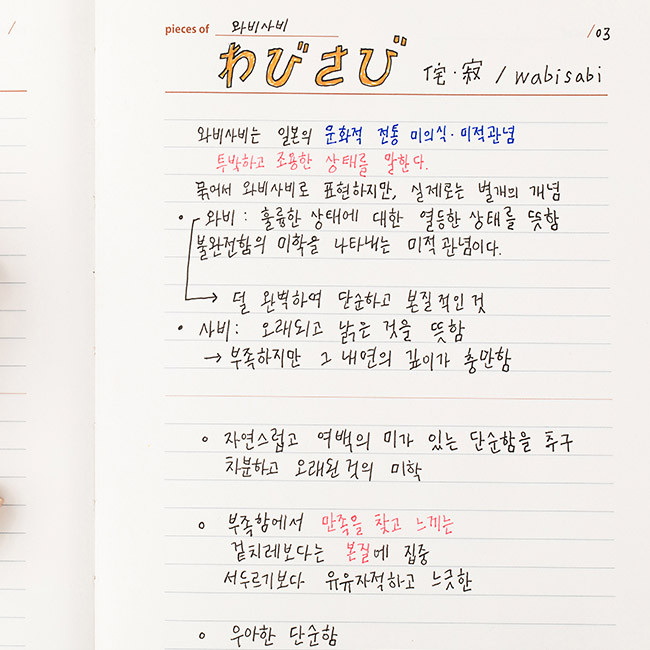 pieces of 와비사비 /03
わびさび 侘·寂 / wabisabi
와비사비는 일본의 문화적 전통 미의식·미적관념
투박하고 조용한 상태를 말한다.
묶어서 와비사비로 표현하지만, 실제로는 별개의 개념
• 와비 : 훌륭한 상태에 대한 열등한 상태를 뜻함
불완전함의 미학을 나타내는 미적 관념이다.
→ 덜 완벽하여 단순하고 본질적인 것
• 사비 : 오래되고 낡은 것을 뜻함
→ 부족하지만 그 내면의 깊이가 충만함
○ 자연스럽고 여백의 미가 있는 단순함을 추구
차분하고 오래된것의 미학
○ 부족함에서 만족을 찾고 느끼는
겉치레보다는 본질에 집중
서두르기보다 유유자적하고 느긋한
○ 우아한 단순함